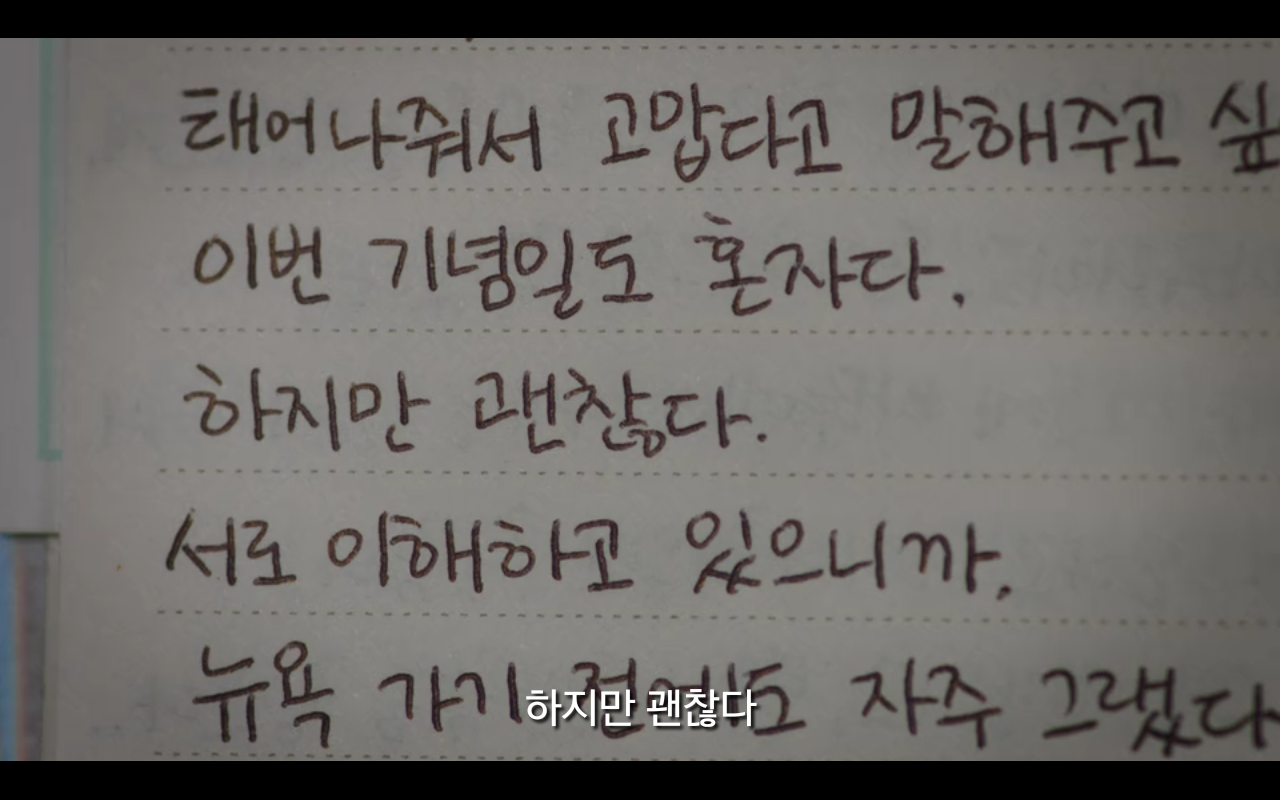 태어나줘서 고맙다고 말해주고 싶
이번 기념일도 혼자다.
하지만 괜찮다.
서로 이해하고 있으니까.
뉴욕 가기 전에도 자주 그랬다
하지만 괜찮다